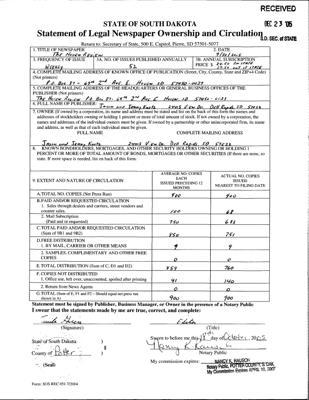 RECEIVED
DEC 23 '05
S.D. SEC. of STATE
STATE OF SOUTH DAKOTA
Statement of Legal Newspaper Ownership and Circulation
Return to: Secretary of State, 500 E. Capitol, Pierre, SD 57501-5077
1. TITLE OF NEWSPAPER
2. DATE
3. FREQUENCY OF ISSUE
3A. NO. OF ISSUES PUBLISHED ANNUALLY
3B. ANNUAL SUBSCRIPTION
PRICE $
Weekly
52
4. COMPLETE MAILING ADDRESS OF KNOWN OFFICE OF PUBLICATION (Street, City, County, State and ZIP+4 Code)
(Not printers)
5. COMPLETE MAILING ADDRESS OF THE HEADQUARTERS OR GENERAL BUSINESS OFFICES OF THE
PUBLISHER (Not printer)
6. FULL NAME OF PUBLISHER:
7. OWNER (If owned by a corporation, its name and address must be stated and list on the back of this form the names and
addresses of stockholders owning or holding 1 percent or more of total amount of stock. If not owned by a corporation, the
names and addresses of the individual owners must be given. If owned by a partnership or other unincorporated firm, its name
and address, as well as that of each individual must be given.
FULL NAME
COMPLETE MAILING ADDRESS
8. KNOWN BONDHOLDERS, MORTGAGES, AND OTHER SECURITY HOLDERS OWNING OR HOLDING 1
PERCENT OR MORE OF TOTAL AMOUNT OF BONDS, MORTGAGES OR OTHER SECURITIES (If there are none, so
state. If more space is needed, list on back of this form.
9. EXTENT AND NATURE OF CIRCULATION
AVERAGE NO. COPIES
EACH
ISSUED PRECEDING 12
MONTHS
ACTUAL NO. COPIES
ISSUED
NEAREST TO FILING DATE
A. TOTAL NO. COPIES (Net Press Run)
900
900
B. PAID AND/OR REQUESTED CIRCULATION
1. Sales through dealers and carriers, street vendors and
counter sales.
100
68
2. Mail Subscription
(Paid and or requested)
750
C. TOTAL PAID AND/OR REQUESTED CIRCULATION
(Sum of 9B1 and 9B2)
850
751
D. FREE DISTRIBUTION
1. BY MAIL, CARRIER OR OTHER MEANS
9
9
2. SAMPLES, COMPLIMENTARY AND OTHER FREE
COPIES
0
0
E. TOTAL DISTRIBUTION (Sum of C, D1 and D2)
859
760
F. COPIES NOT DISTRIBUTED
1. Office use, left over, unaccounted, spoiled after printing
41
140
2. Return from News Agents
0
0
G. TOTAL (Sum of E, F1 and F2 - Should equal net press run
shown in A)
900
900
Statement must be signed by Publisher, Business Manager, or Owner in the presence of a Notary Public
I swear that the statements made by me are true, correct, and complete:
(Signature)
(Title)
State of South Dakota )
County of Potter )
(Seal)
Sworn to before me this day of October, 2005
Nancy K. Rausch
Notary Public
My commission expires:
NANCY K. RAUSCH
Notary Public, POTTER COUNTY, S. DAK.
My Commission Expires APRIL 10, 2007